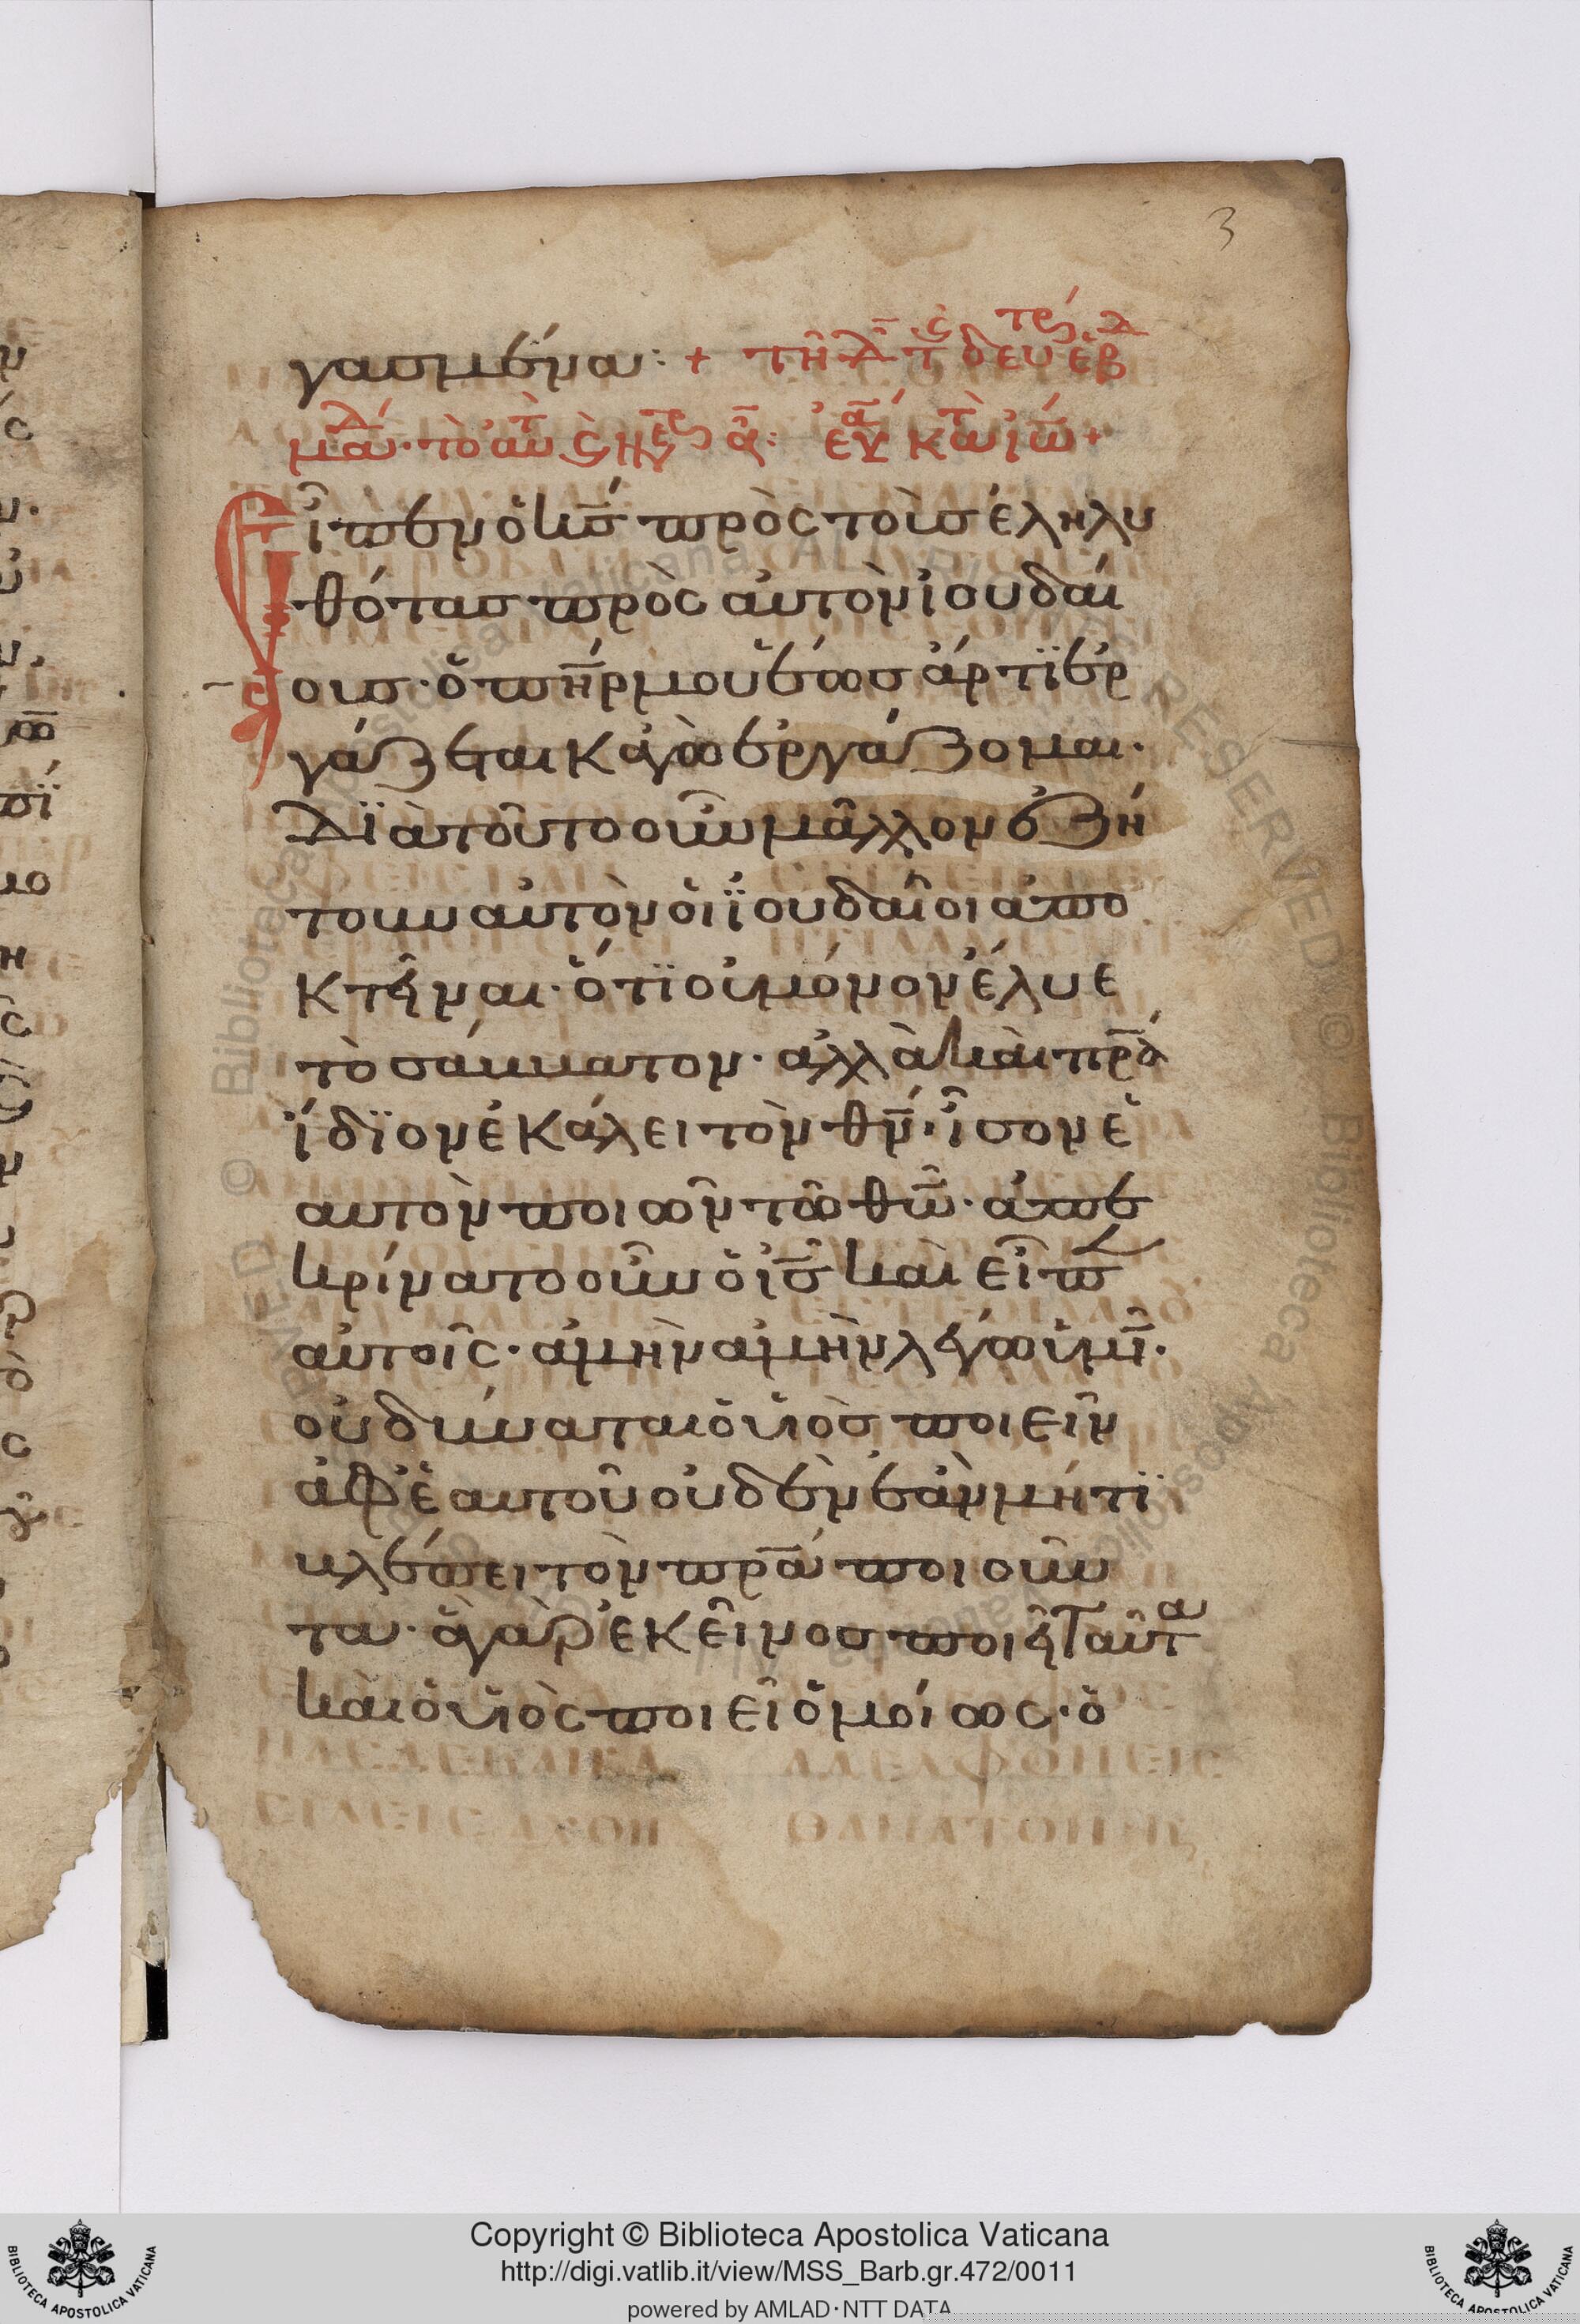 3
γασμένα: + τῆ δ̄ τ̄ς δευτέρ ἑβ
μᾱδ· τὸ αὐτ
Εἶπεν ὁ ις̄ πρὸς τοὺσ ἐληλυ
θότασ πρὸς αὐτὸν ἰουδαί
ουσ· ὁ πη̄ρ μου ἕωσ ἄρτϊ ἐρ
γάζεται καγὼ ἐργάζομαι·
Δϊὰ τοῦτο οὖν μᾶλλον ἐζή
τουν αὐτὸν οἱ ϊουδαῖοι ἀπο
κτεῖναι· ὅτϊ οὐ μόνον ἔλυε
τὸ σάββατον· ἀλλὰ καὶ πρ̄α
ἴδϊον ἐκάλει τὸν θν̄· ἶσον ἑ
αυτὸν ποιῶν τῶ θω̄· ἀπε
κρίνατο οὖν ὁ ις̄ καὶ εἶπ
αὐτοῖς· ἀμὴν ἀμὴν λέγω ὑμῖ̄·
οὐ δύναται ὁ υἱὸσ ποιεῖν
ἀφ' ἑαυτοῦ οὐδὲν ἐὰν μή τϊ
βλέπει τὸν πρ̄α ποιοῦν
τα· ἃ γὰρ ἐκεῖνοσ ποιεῖ ταῦτα
καὶ ὁ υἱὸς ποιεῖ ὁμοίως· ὁ
Copyright © Biblioteca Apostolica Vaticana
http://digi.vatlib.it/view/MSS_Barb.gr.472/0011
powered by AMLAD·NTT DATA
BIBLIOTECA APOSTOLICA VATICANA
BIBLIOTECA APOSTOLICA VATICANA